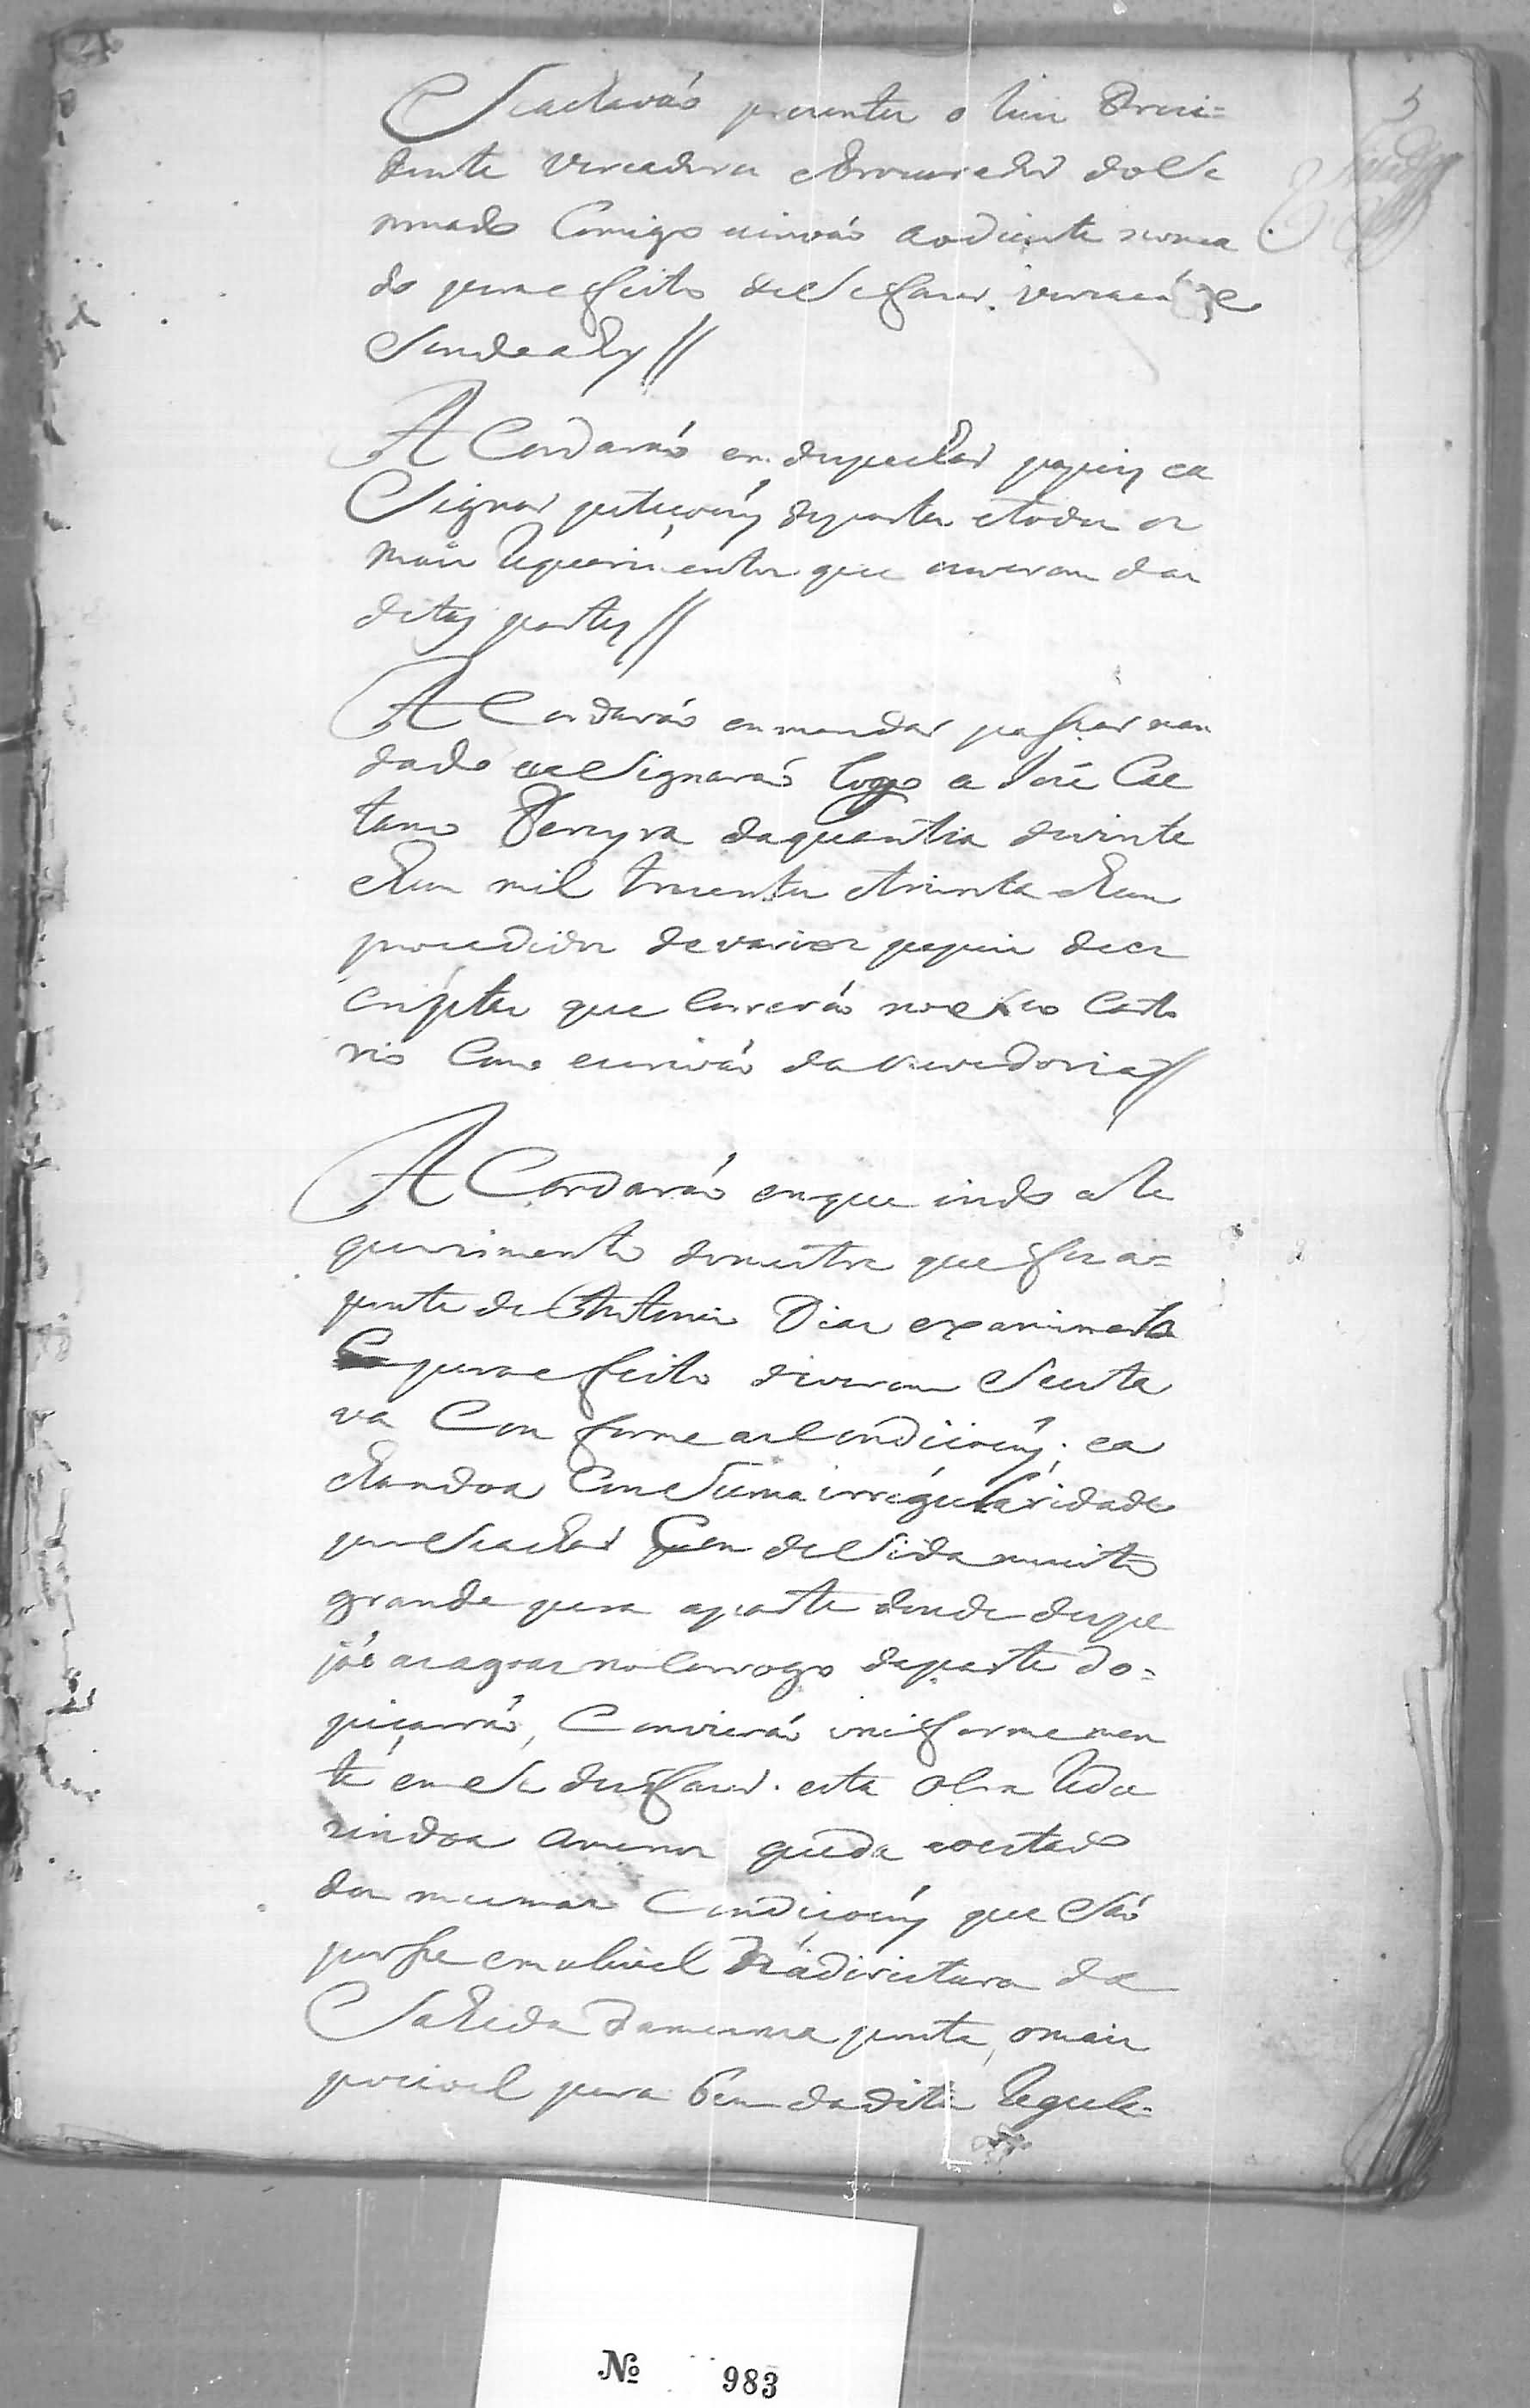 Se acharaó prezentes o Juis Prezi=
dente Vereadores e Procurador do Se
nnado Comigo escrivaó ao diente nomea
do para efeito de Se fazer vereaçaó e
Sendo ahy //
A Cordaraó em despachar papeis e a
Signar petiçoins de partes e todos os
mais Requerimentos que ouveram das
ditas partes //
A Cordaraó em mandar passar man
dado que Signaraó logo a José Cae
tano Pereyra da quantia de vinte
e hum mil trezentos e trinta e hum
procedidos de varios papeis de es
criptos que Correraó no Seo Carto
rio Como escrivaó da ouvedoria //
A Cordaraó em que indo a Re
querimento do mestre que fez a=
ponte de Antonio Dias examinarla
para efeito diseram Se esta
va Com forme as Condiçoins; e a
chandoa Com Suma irregularidade
por Se achar Com de Sida muito
grande para a parte donde despe
jaó as agoas no Corrogo da parte do=
piçarraó, Convieraó uniformemen
te em Se desfazer esta obra Redu
zindoa a menos queda e o estado
das mesmas Condiçoins que Saó
por se em o livel e a direitura da
Sahida da mesma ponte, o mais
posivel para bem da dita Regula=
5
№ 983